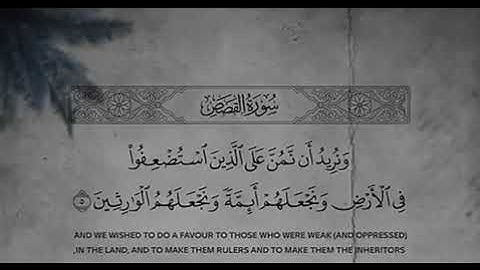 سُورَةُ القَصَصِ
وَنُرِيدُ أَن نَّمُنَّ عَلَى الَّذِينَ اسْتُضْعِفُوا
فِي الْأَرْضِ وَنَجْعَلَهُمْ أَئِمَّةً وَنَجْعَلَهُمُ الْوَارِثِينَ ٥
AND WE WISHED TO DO A FAVOUR TO THOSE WHO WERE WEAK (AND OPPRESSED)
,IN THE LAND, AND TO MAKE THEM RULERS AND TO MAKE THEM THE INHERITORS